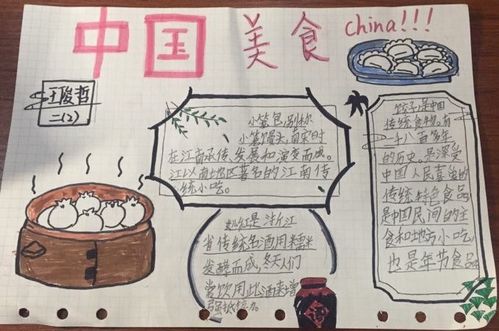 中国美食 china!!!
王俊哲
二(2)
小笼包,别称
小笼馒头,
在江南承传、发展和演变而成。
江以南地区著名的江南传
统小吃。
是浙江
省传统名酒用糯米
发酵而成,冬天人们
常饮用此酒来增
饺子是中国
传统食物,有一
千八百多年
的历史,是深受
中国人民喜爱的
传统特色食品
是中国民间的主
食和地方小吃
也是年节食品
酒